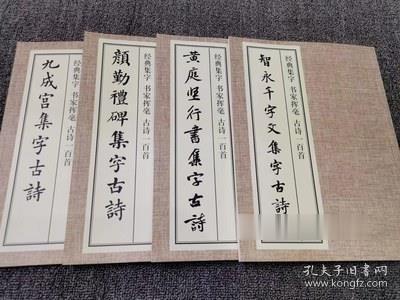 九成宫集字古詩
经典集字 书家挥毫 古诗一百首
顏勤禮碑集字古詩
经典集字 书家挥毫 古诗一百首
黄庭坚行書集字古詩
经典集字 书家挥毫 古诗一百首
智永千字文集字古詩
经典集字 书家挥毫 古诗一百首
孔夫子旧书网
www.kongfz.com